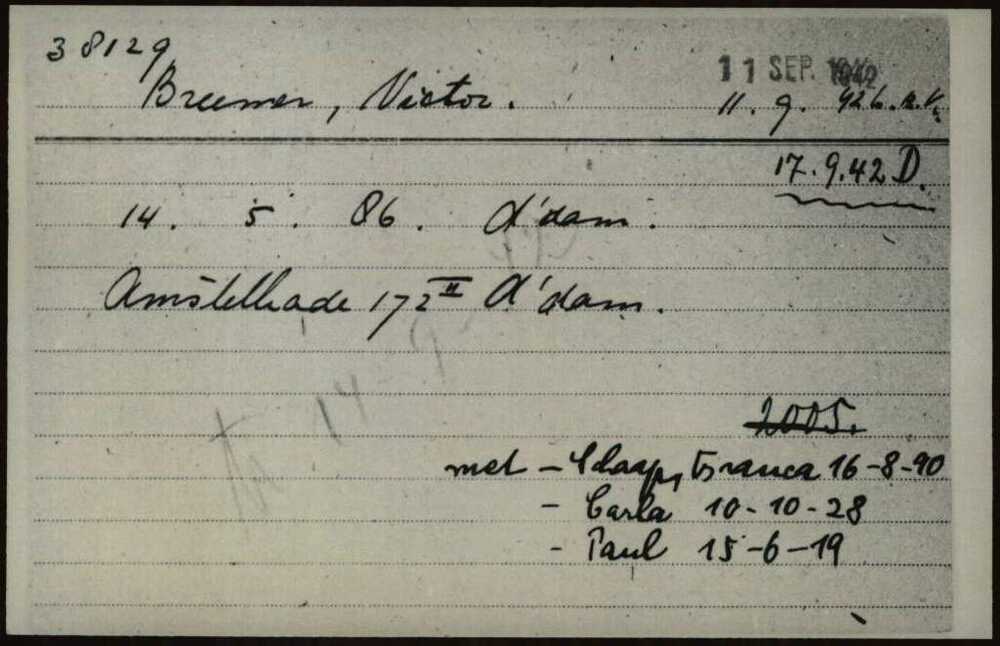 38129
11 SEP. 1942
Breemer, Victor. 11. 9. 42
17.9.42 D.
14. 5. 86. A'dam.
Amstelkade 172 II A'dam.
14-9
2005.
met - Schaap, Branca 16-8-90
- Carla 10-10-28
- Paul 15-6-19